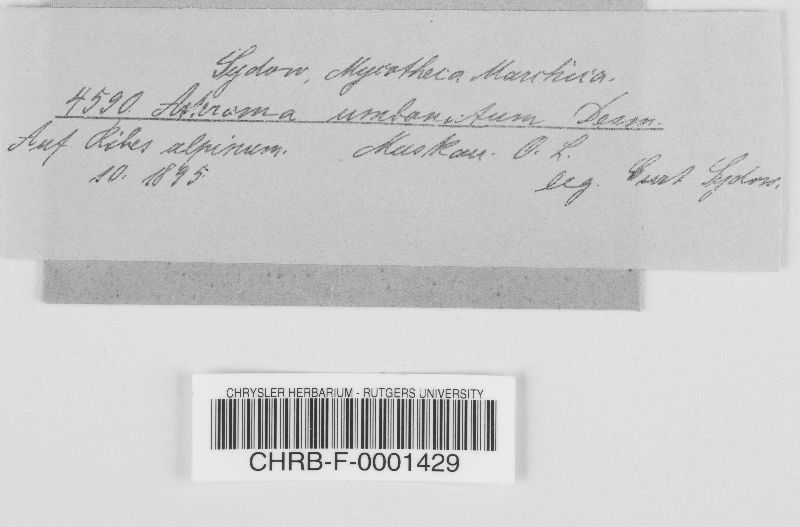 Sydow, Mycotheca Marchica.
4590 Asteroma umbonatum Desm.
Auf Ribes alpinum. Muskau. O. L.
10. 1895 leg. Curt Sydow.
CHRYSLER HERBARIUM - RUTGERS UNIVERSITY
CHRB-F-0001429